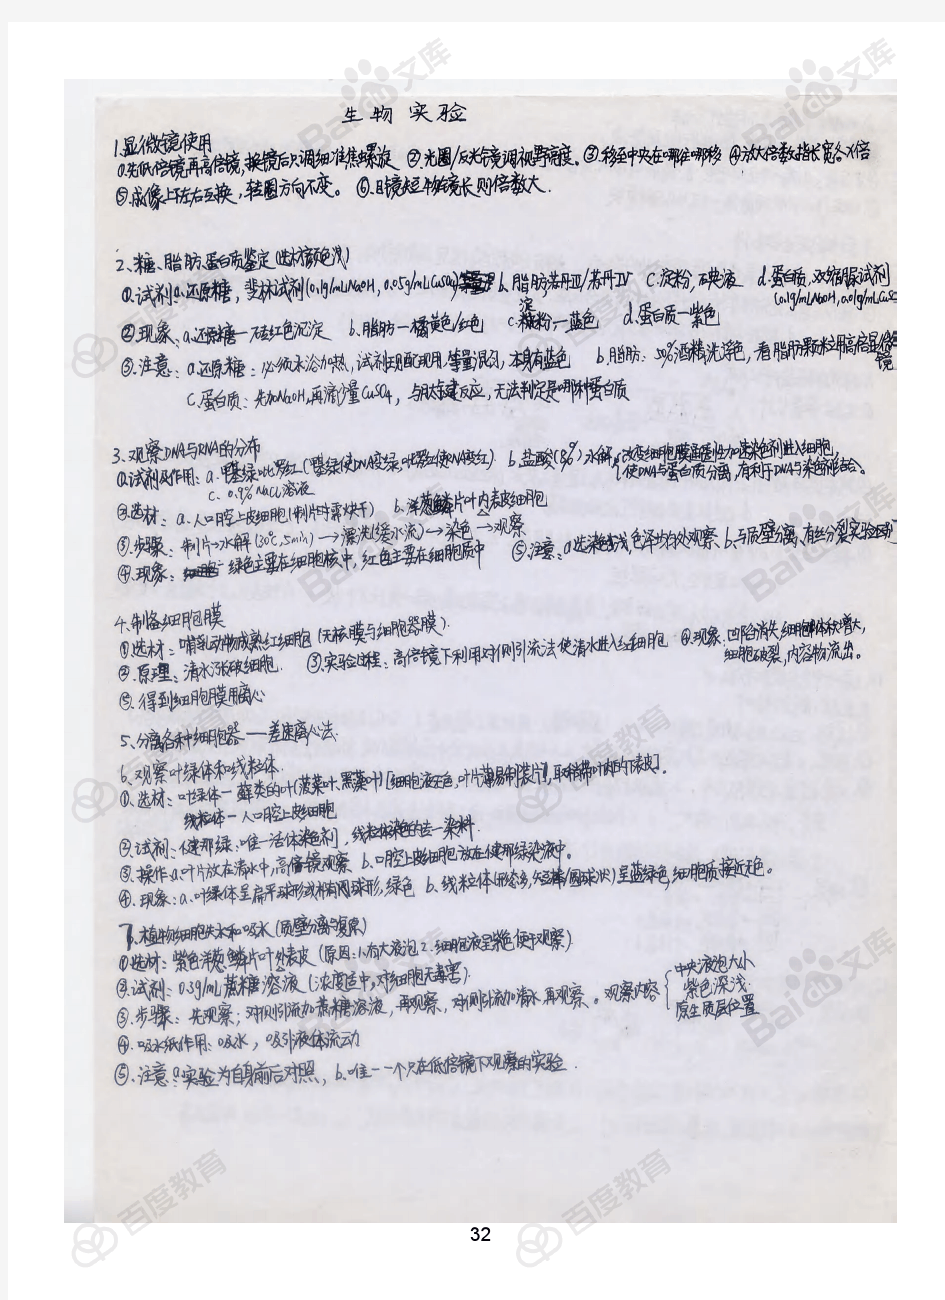 生物实验
1.显微镜使用
①先低倍镜再高倍镜,换镜后只调细准焦螺旋 ②光圈/反光镜调视野亮度。③移至中央在哪往哪移 ④放大倍数指长宽各X倍
⑤成像上下左右互换,转圈方向不变。 ⑥目镜短物镜长则倍数大.
2、糖、脂肪、蛋白质鉴定(选材颜色浅)
①.试剂:a.还原糖,斐林试剂(0.1g/mLNaOH, 0.05g/mLCuSO4) b.脂肪:苏丹Ⅲ/苏丹Ⅳ C.淀粉,碘液 d.蛋白质,双缩脲试剂
(0.1g/mLNaOH,0.01g/mLCuSO
②现象:a.还原糖—砖红色沉淀 b.脂肪—橘黄色/红色 c.淀粉,—蓝色 d.蛋白质—紫色
③.注意:a.还原糖:必须水浴加热,试剂现配现用,等量混匀,本身有蓝色 b.脂肪:50%酒精洗浮色,看脂肪颗粒用高倍显微镜
C.蛋白质:先加NaOH,再滴少量CuSO4,与肽键反应,无法判定是哪种蛋白质
3、观察DNA与RNA的分布
①.试剂及作用:a.甲基绿吡罗红(甲基绿使DNA变绿,吡罗红使RNA变红) b.盐酸(8%)水解{改变细胞膜通透性加速染色剂进入细胞,
使DNA与蛋白质分离,有利于DNA与染色剂结合。
c. 0.9% NaCl溶液
②.选材:a.人口腔上皮细胞(制片时需烘干) b.洋葱鳞片叶内表皮细胞
③.步骤:制片→水解(30℃,5min)→漂洗(缓水流)→染色→观察
④.现象:绿色主要在细胞核中,红色主要在细胞质中 ⑤.注意:a.选染色浅色泽均匀处观察、b.与质壁分离、有丝分裂实验
4.制备细胞膜
①选材:哺乳动物成熟红细胞(无核膜与细胞器膜).
②.原理:清水涨破细胞. ③.实验过程:高倍镜下利用对侧引流法使清水进入红细胞 ④现象:凹陷消失,细胞体积增大,
细胞破裂,内容物流出。
⑤.得到细胞膜用离心
5、分离各种细胞器——差速离心法.
6.观察叶绿体和线粒体.
①.选材:叶绿体—藓类的叶(菠菜叶、黑藻叶)[细胞液无色,叶片薄易制装片],取稍带叶肉的下表皮].
线粒体—人口腔上皮细胞
②.试剂:健那绿:唯一活体染色剂,线粒体染色的专一染料.
③.操作:a.叶片放在清水中,高倍镜观察 b.口腔上皮细胞放在健那绿染液中。
④.现象:a.叶绿体呈扁平球形或椭球形,绿色 b.线粒体(形态多,短棒/圆球状)呈蓝绿色,细胞质接近无色。
7.植物细胞失水和吸水(质壁分离与复原)
①选材:紫色洋葱鳞片叶外表皮(原因:1.有大液泡 2.细胞液呈紫色便于观察)
②.试剂:0.3g/mL蔗糖溶液(:浓度适中,对细胞无毒害)
③.步骤:先观察;对侧引流加蔗糖溶液,再观察,对侧引流加清水再观察。观察内容{中央液泡大小
紫色深浅.
原生质层位置
④.吸水纸作用:吸水,吸引液体流动
⑤.注意:a.实验为自身前后对照,b.唯一一个只在低倍镜下观察的实验.
32
Baidu文库
百度教育